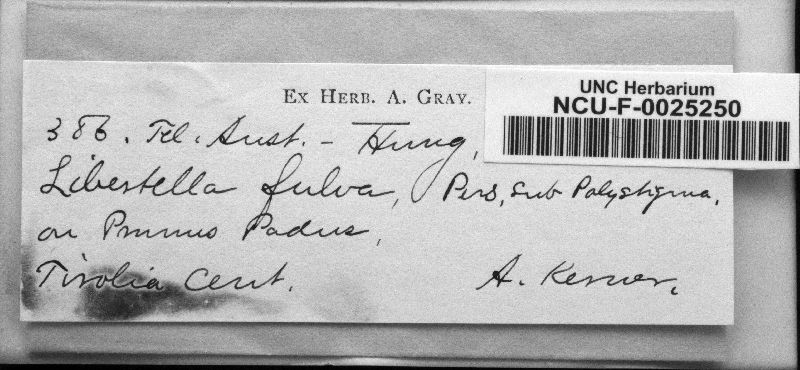 Ex Herb. A. Gray.
UNC Herbarium
NCU-F-0025250
386. Fl. Aust. - Hung,
Libertella fulva, Pers, sub Polystigma,
on Prunus Padus,
Tirolia Cent. A. Kerner.